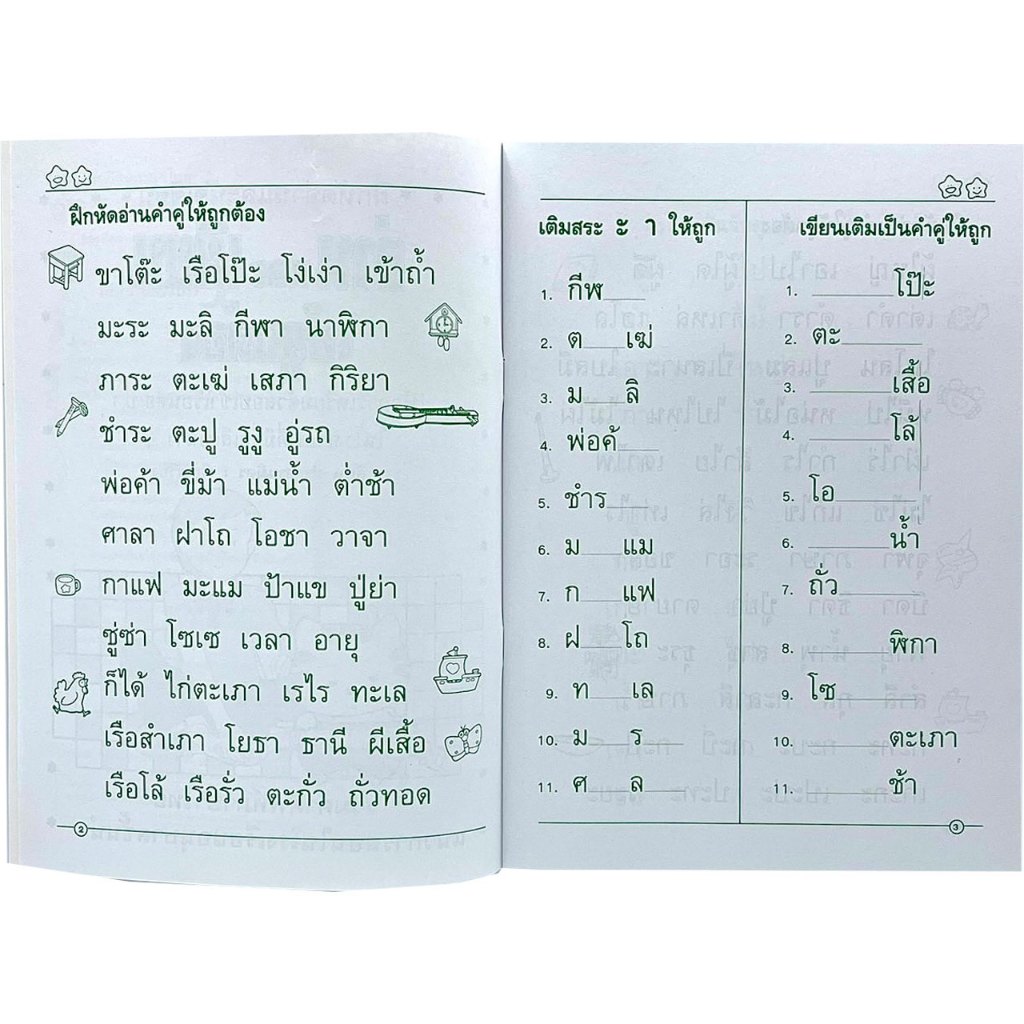 ฝึกหัดอ่านคำคู่ให้ถูกต้อง
ขาโต๊ะ เรือโป๊ะ โง่เง่า เข้าถ้ำ
มะระ มะลิ กีฬา นาฬิกา
ภาระ ตะเฆ่ เสภา กิริยา
ชำระ ตะปู รูงู อู่รถ
พ่อค้า ขี่ม้า แม่น้ำ ต่ำช้า
ศาลา ฝาโถ โอชา วาจา
กาแฟ มะแม ป้าแข ปู่ย่า
ซู่ซ่า โซเซ เวลา อายุ
ก็ได้ ไก่ตะเภา เรไร ทะเล
เรือสำเภา โยธา ธานี ผีเสื้อ
เรือโล้ เรือรั่ว ตะกั่ว ถั่วทอด
2
เติมสระ ะ า ให้ถูก
1. กีฬ____
2. ต____เฆ่
3. ม____ลิ
4. พ่อค้____
5. ชำร____
6. ม____แม
7. ก____แฟ
8. ฝ____โถ
9. ท____เล
10. ม____ร____
11. ศ____ล____
เขียนเติมเป็นคำคู่ให้ถูก
1. ________โป๊ะ
2. ตะ________
3. ________เสื้อ
4. ________โล้
5. โอ________
6. ________น้ำ
7. ถั่ว________
8. ________ฬิกา
9. โซ________
10. ________ตะเภา
11. ________ช้า
3